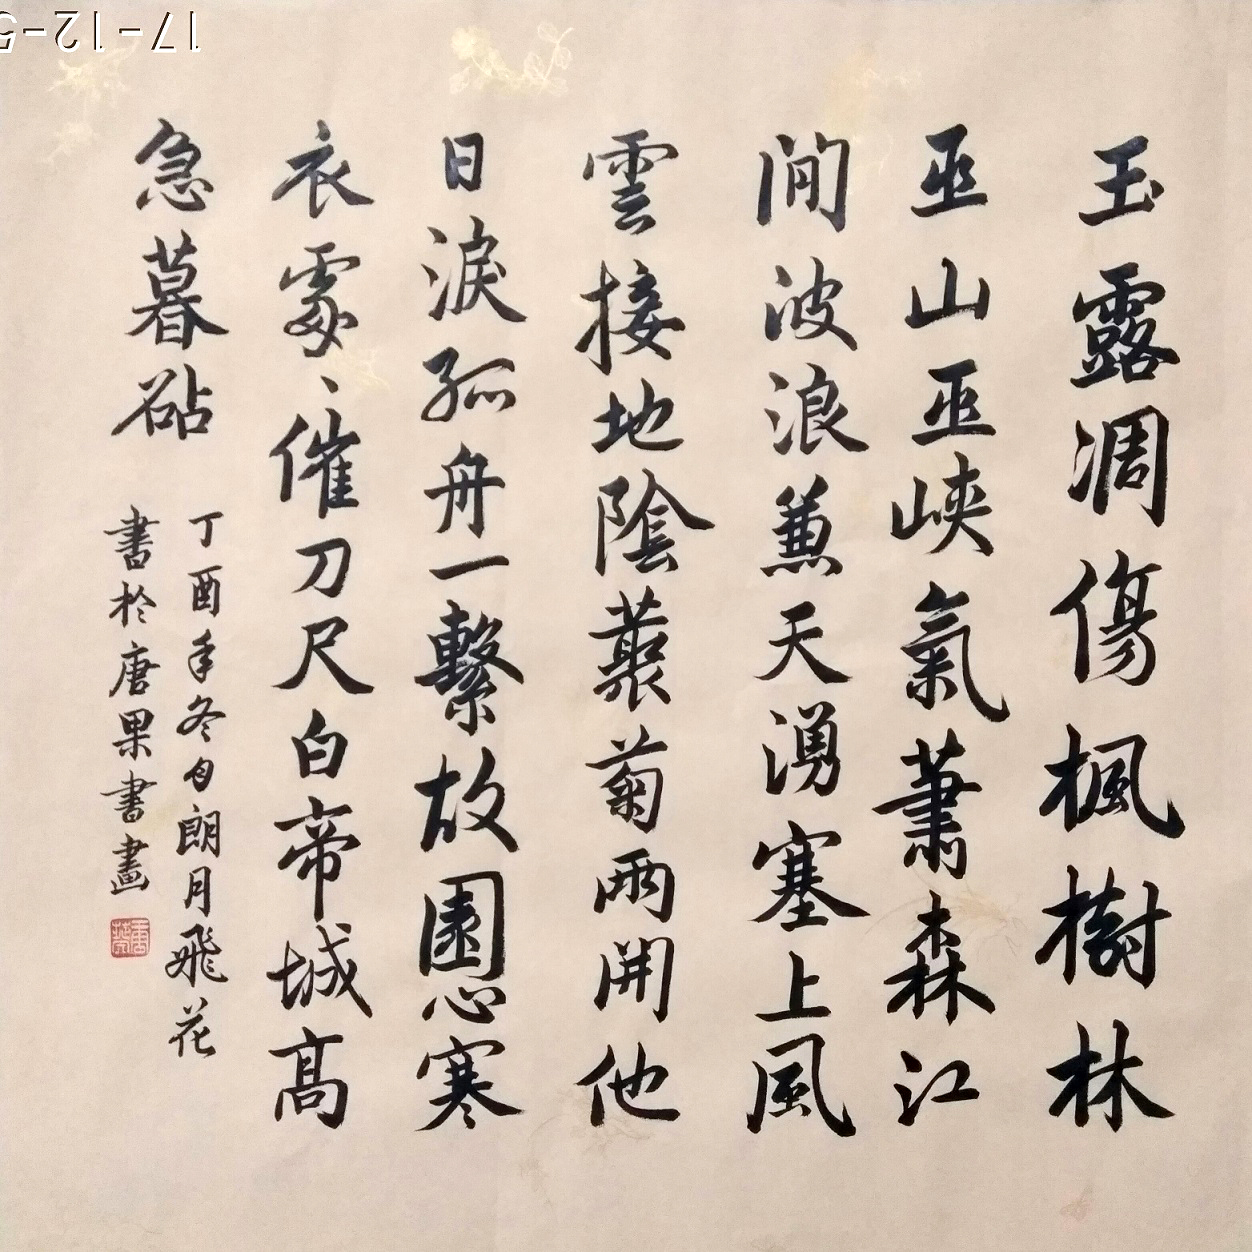 玉露凋傷楓樹林
巫山巫峽氣蕭森江
間波浪兼天湧塞上風
雲接地陰叢菊兩開他
日淚孤舟一繫故園心寒
衣處、催刀尺白帝城高
急暮砧
丁酉年冬月朗月飛花
書於唐果書畫
17-12-5